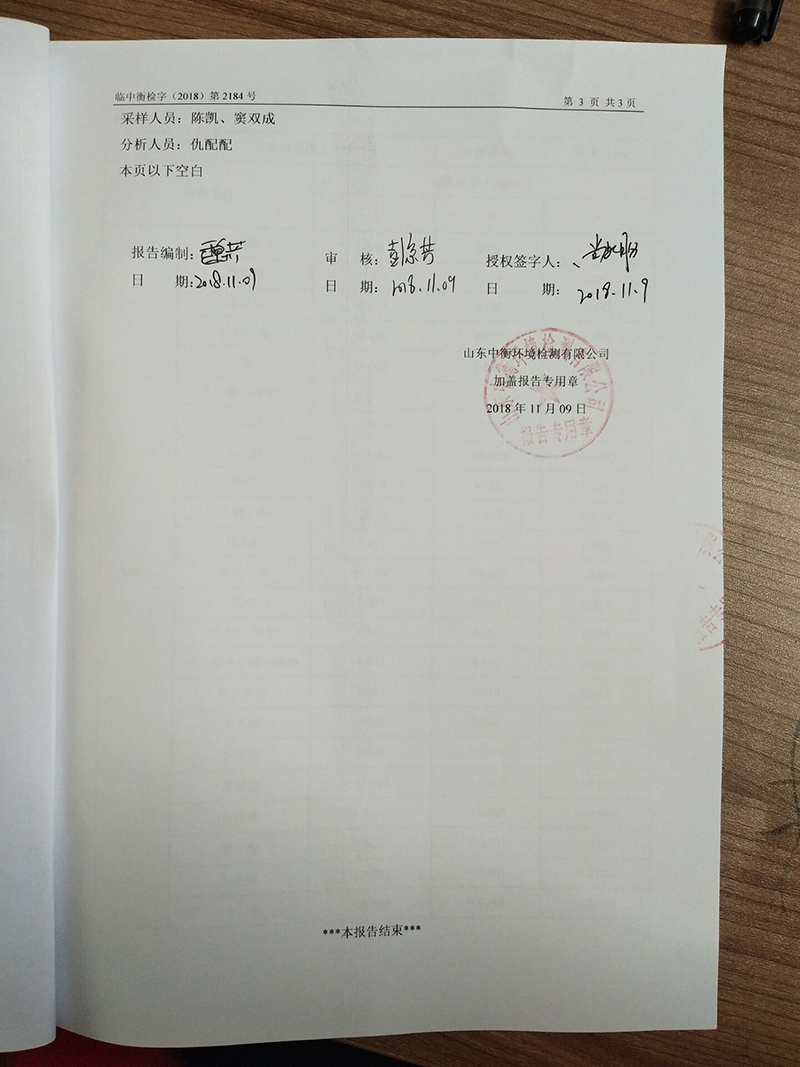 临中衡检字（2018）第 2184 号
第 3 页 共 3 页
采样人员：陈凯、窦双成
分析人员：仇配配
本页以下空白
报告编制：
审 核：
授权签字人：
日 期：2018.11.09
日 期：2018.11.09
日 期：2018.11.9
山东中衡环境检测有限公司
加盖报告专用章
2018 年 11 月 09 日
山东中衡环境检测有限公司
报告专用章
有限公
报告专用
***本报告结束***